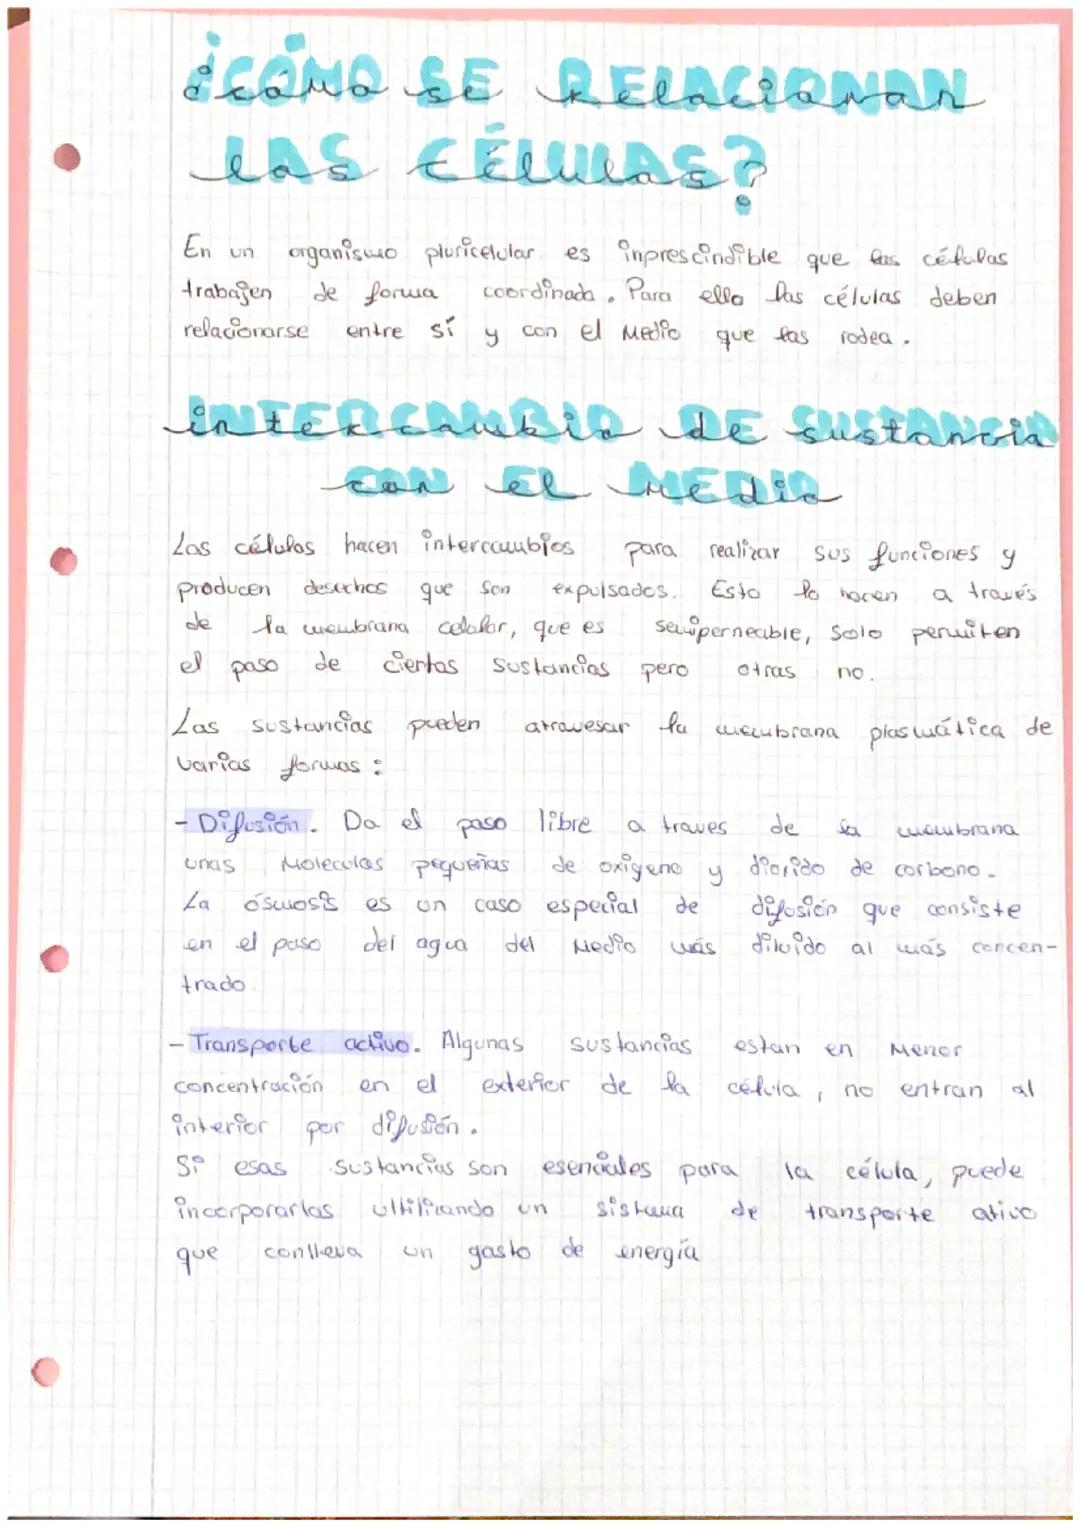 ¿CÓMO SE RELACIONAN
LAS CÉLULAS?
En un organismo pluricelular es inprescindible que las células
trabajen de forma coordinada. Para ello las células deben
relacionarse entre sí y con el medio que las rodea.
INTERCAMBIO DE SUSTANCIA
CON EL MEDIO
Las células hacen intercambios para realizar sus funciones y
producen desechos que son expulsados. Esto lo hacen a través
de la membrana celular, que es semiperneable, solo permiten
el paso de ciertas sustancias pero otras no.
Las sustancias pueden atravesar la membrana plasmática de
varias formas:
- Difusión. Da el paso libre a traves de la membrana
unas moleculas pequeñas de oxigeno y dioxido de carbono.
La ósmosis es un caso especial de difusión que consiste
en el paso del agua del medio más diluido al más concen-
trado.
- Transporte activo. Algunas sustancias estan en menor
concentración en el exterior de la célula, no entran al
interior por difusión.
Si esas sustancias son esenciales para la célula, puede
incorporarlas ultilizando un sistema de transporte ativo
que conlleva un gasto de energía